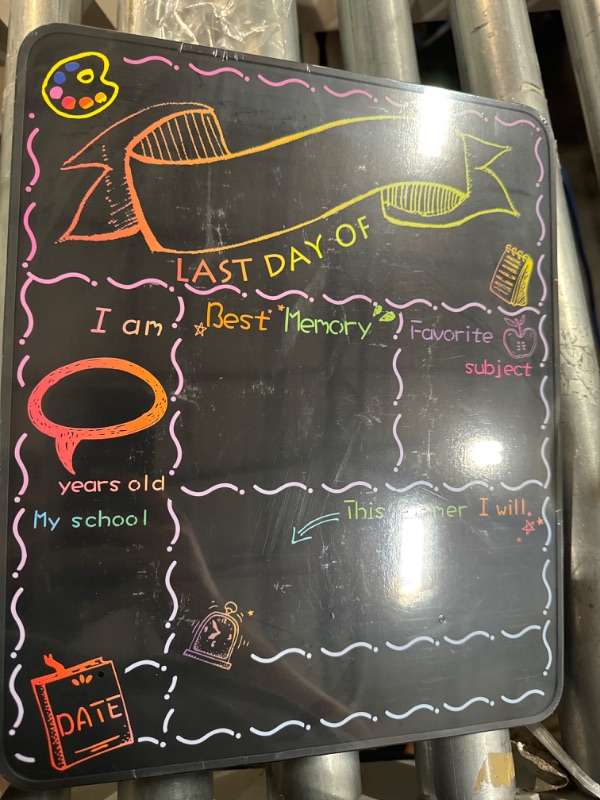 LAST DAY OF
I am
Best Memory
Favorite
subject
years old
My school
This I will
DATE